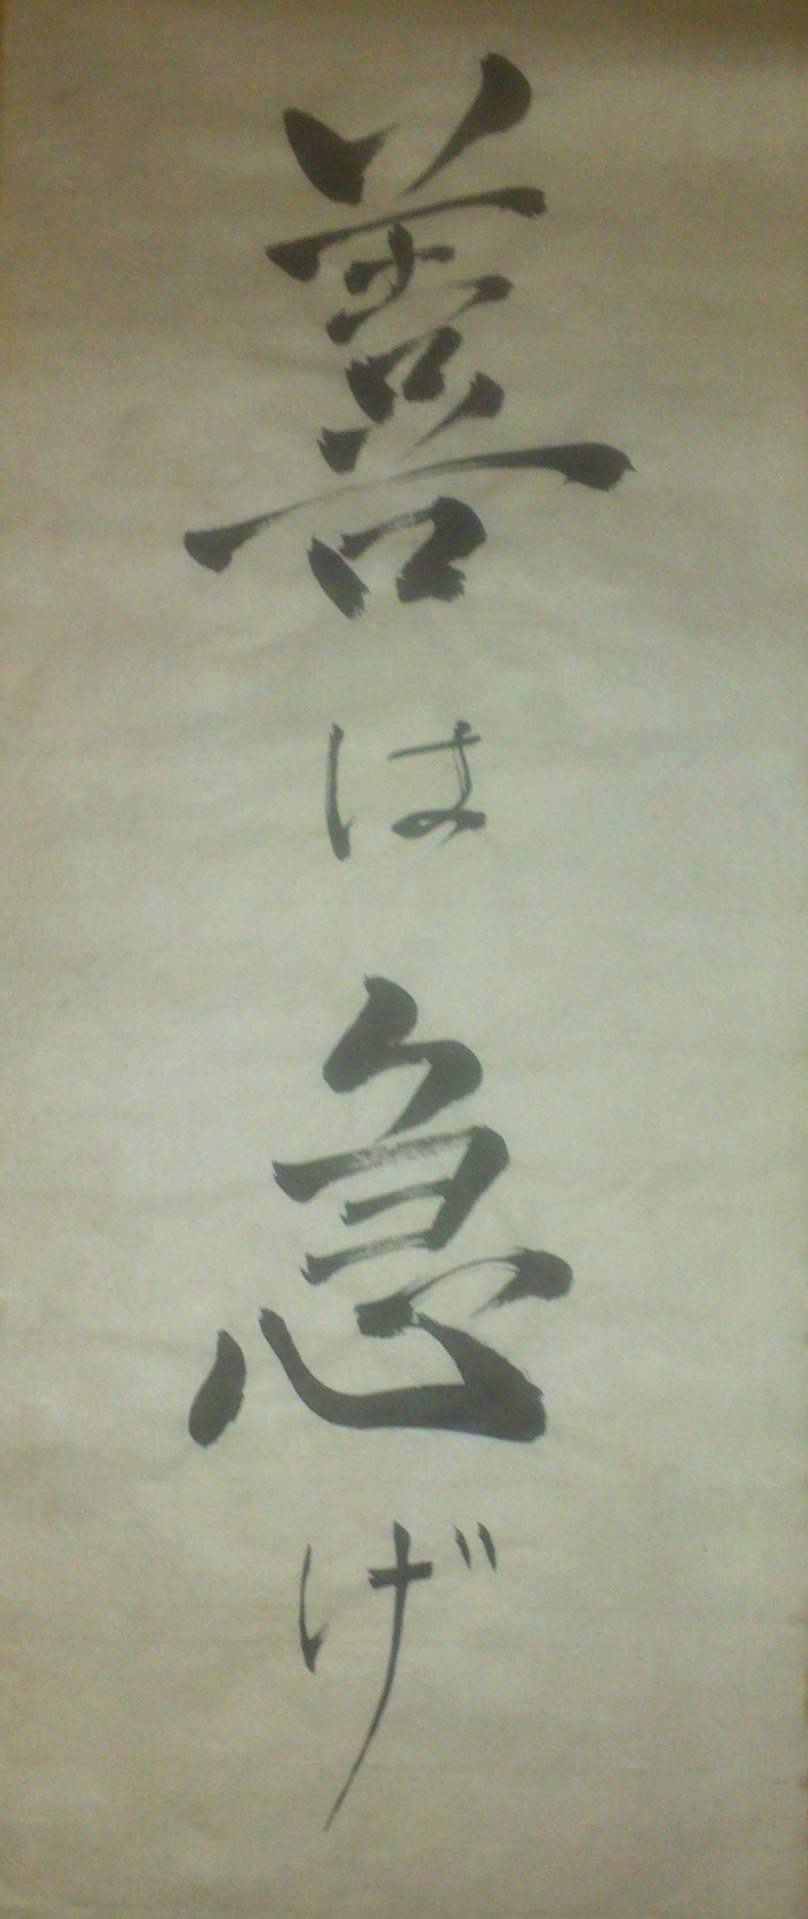 善は急げ